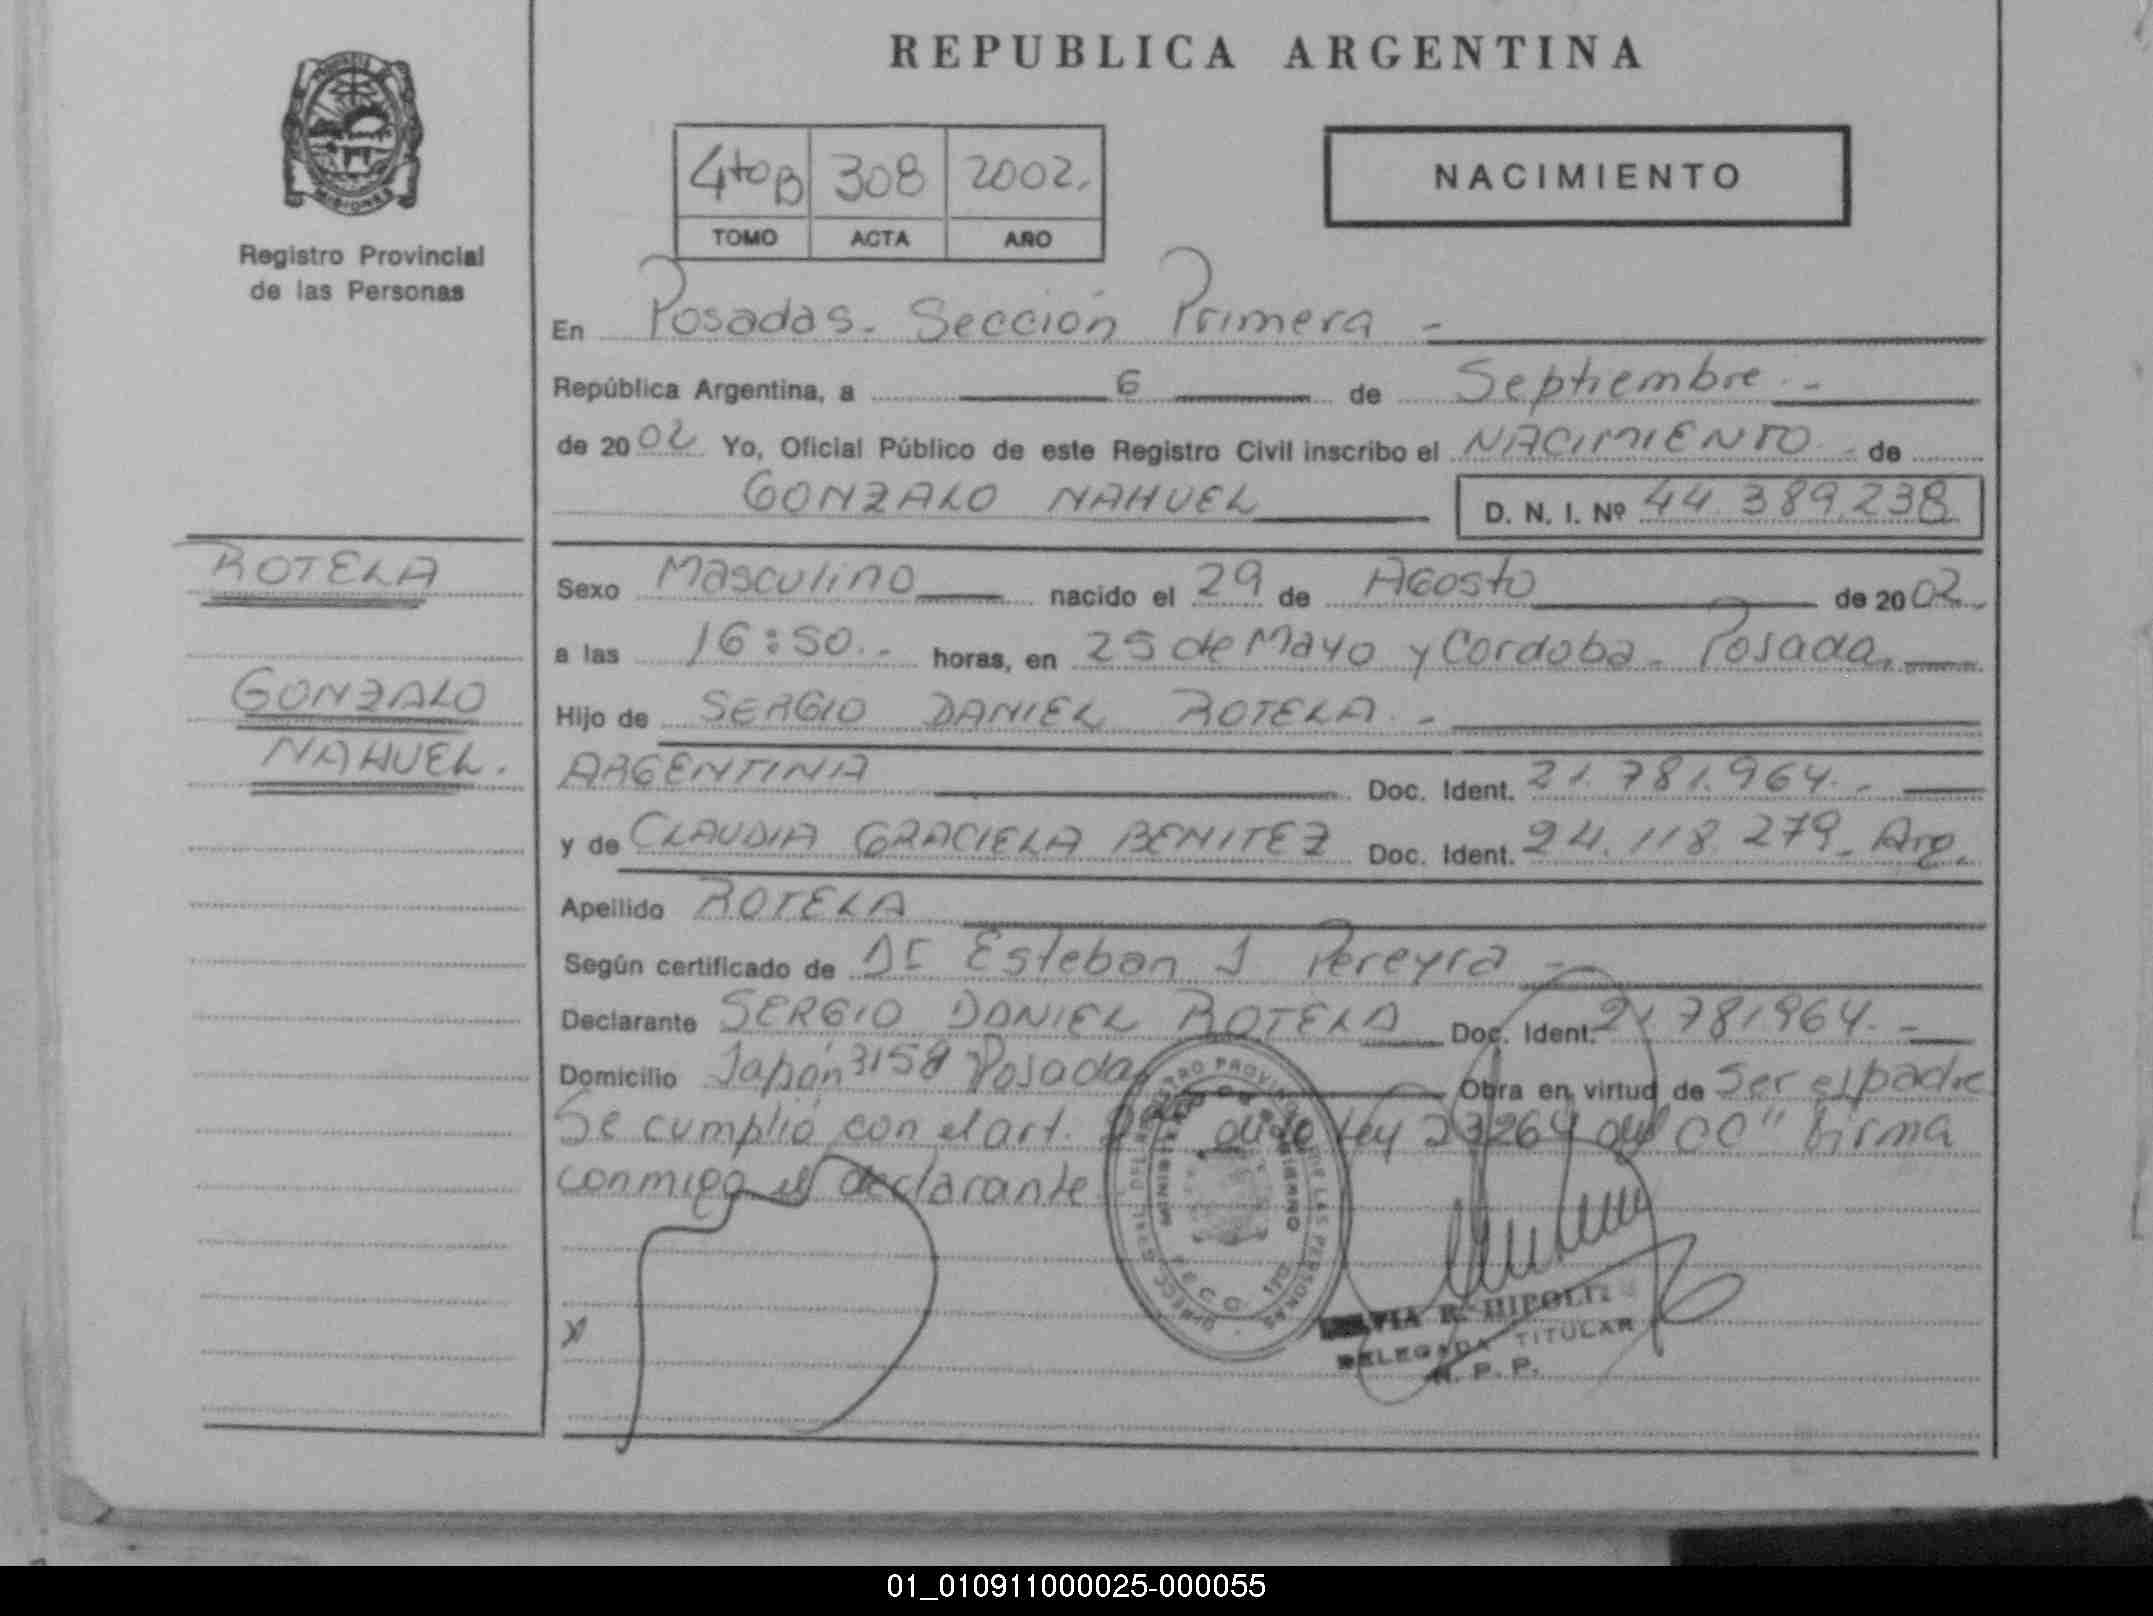 REPUBLICA ARGENTINA
PROVINCIA DE
MISIONES
Registro Provincial
de las Personas
4toB 308 2002.
TOMO ACTA AÑO
NACIMIENTO
En Posadas. Sección Primera -
República Argentina, a 6 de Septiembre. -
de 2002 Yo, Oficial Público de este Registro Civil inscribo el NACIMIENTO de
GONZALO NAHUEL D. N. I. Nº 44.389.238
ROTELA
GONZALO
NAHUEL.
Sexo Masculino nacido el 29 de Agosto de 2002.
a las 16:50.- horas, en 25 de Mayo y Cordoba. Posadas
Hijo de SERGIO DANIEL ROTELA. -
ARGENTINA Doc. Ident. 21.781.964.-
y de CLAUDIA GRACIELA BENITEZ Doc. Ident. 24.118.279. Arg.
Apellido ROTELA
Según certificado de Dr Esteban J Pereyra -
Declarante SERGIO DANIEL ROTELA Doc. Ident. 21781964.-
Domicilio Japón 3158 Posadas Obra en virtud de Ser el padre
Se cumplió con el art. Ley 23264 del CC" firma
conmigo el declarante
REGISTRO PROVINCIAL DE LAS PERSONAS
MINISTERIO DE GOBIERNO
R. HIPOLIT
DELEGADA TITULAR
R. P. P.
01_010911000025-000055